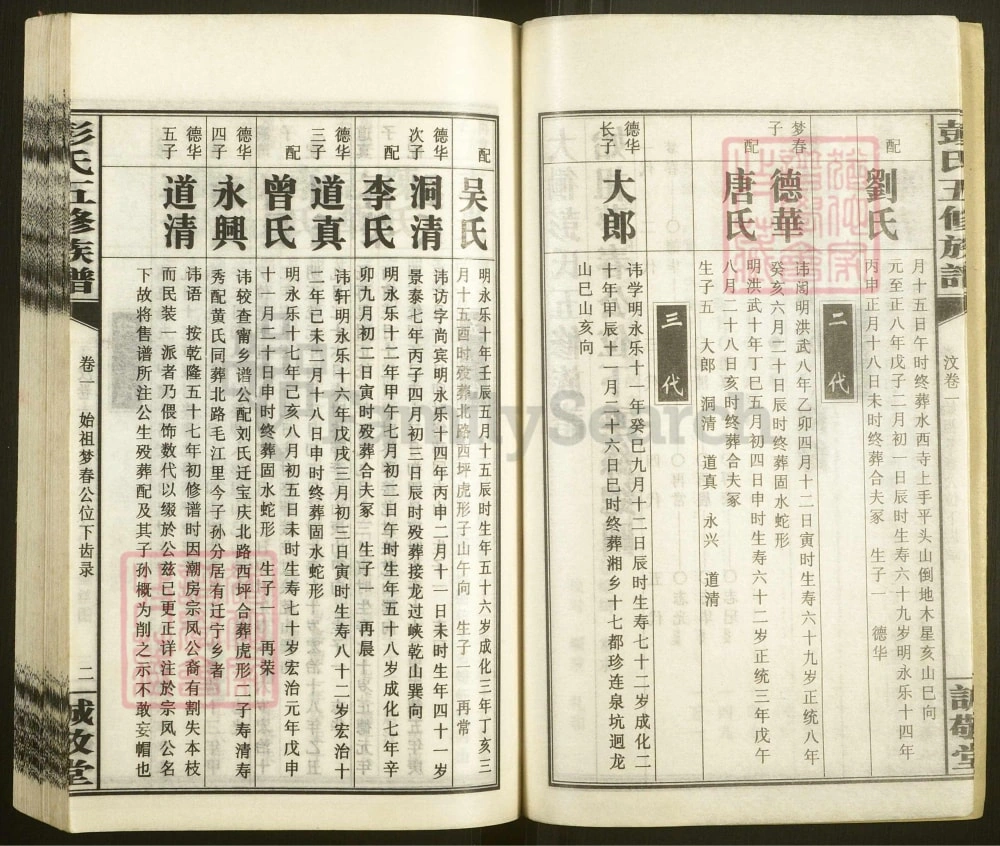 彭氏五修族譜
汶卷一
誠敬堂
配
劉氏
月十五日午时终葬水西寺上手平头山倒地木星亥山巳向
元至正八年戊子二月初一日辰时生寿六十九岁明永乐十四年
丙申正月十八日未时终葬合夫冢 生子一 德华
二代
梦春子
德華
讳阂明洪武八年乙卯四月十二日辰时生寿六十九岁正统八年
癸亥六月二十日辰时终葬固水蛇形
配
唐氏
明洪武十年丁巳五月初四日申时生寿六十二岁正统三年戊午
八月二十八日亥时终葬合夫冢
生子五 大郎 洞清 道真 永兴 道清
三代
德华长子
大郎
讳学明永乐十一年癸巳九月十二日辰时生寿七十二岁成化二
十年甲辰十一月二十六日巳时终葬湘乡十七都珍连泉坑迥龙
山巳山亥向
配
吴氏
明永乐十年壬辰五月十五辰时生年五十六岁成化三年丁亥三
月十五酉时殁葬北路西坪虎形子山午向 生子一 再常
德华次子
洞清
讳访字尚宾明永乐十四年丙申二月十一日未时生年四十一岁
景泰七年丙子四月初三日辰时殁葬接龙过峡乾山巽向
配
李氏
明永乐十二年甲午七月初二日午时生年五十八岁成化七年辛
卯九月初二日寅时殁葬合夫冢 生子一 再晨
德华三子
道真
讳轩明永乐十六年戊戌三月初三日寅时生寿八十二岁宏治十
二年己未二月十八日申时终葬固水蛇形
配
曾氏
明永乐十七年己亥八月初五日未时生寿七十岁宏治元年戊申
十一月二十日申时终葬固水蛇形 生子一 再荣
德华四子
永興
讳较查甯乡谱公配刘氏迁宝庆北路西坪合葬虎形二子寿清寿
秀配黄氏同葬北路毛江里今子孙分居有迁宁乡者
德华五子
道清
讳语 按乾隆五十七年初修谱时因潮房宗凤公裔有割失本枝
而民装一派者乃偎饰数代以缀於公兹已更正详注於宗凤公名
下故将售谱所注公生殁葬配及其子孙概为削之示不敢妄帽也
彭氏五修族譜
卷一
始祖梦春公位下齿录
二
誠敬堂
FamilySearch